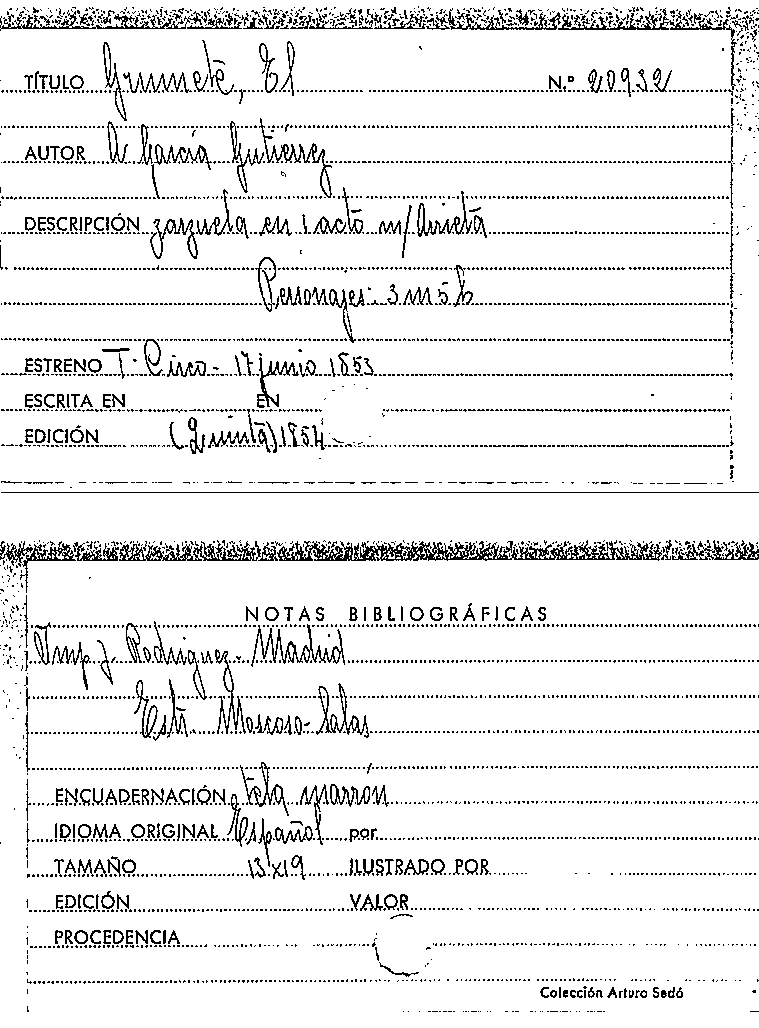 TÍTULO Grumete, El N.º 20932
AUTOR A García Gutiérrez
DESCRIPCIÓN zarzuela en 1 acto m/ Arrieta
Personajes: 3 m 5 h
ESTRENO T. Circo - 17 junio 1853
ESCRITA EN EN
EDICIÓN (Quinta) 1854
NOTAS BIBLIOGRÁFICAS
Imp J. Rodriguez - Madrid
Estr. Moscoso - Salas
ENCUADERNACIÓN tela marrón
IDIOMA ORIGINAL Español por
TAMAÑO 13x19 ILUSTRADO POR
EDICIÓN VALOR
PROCEDENCIA
Colección Arturo Sedó